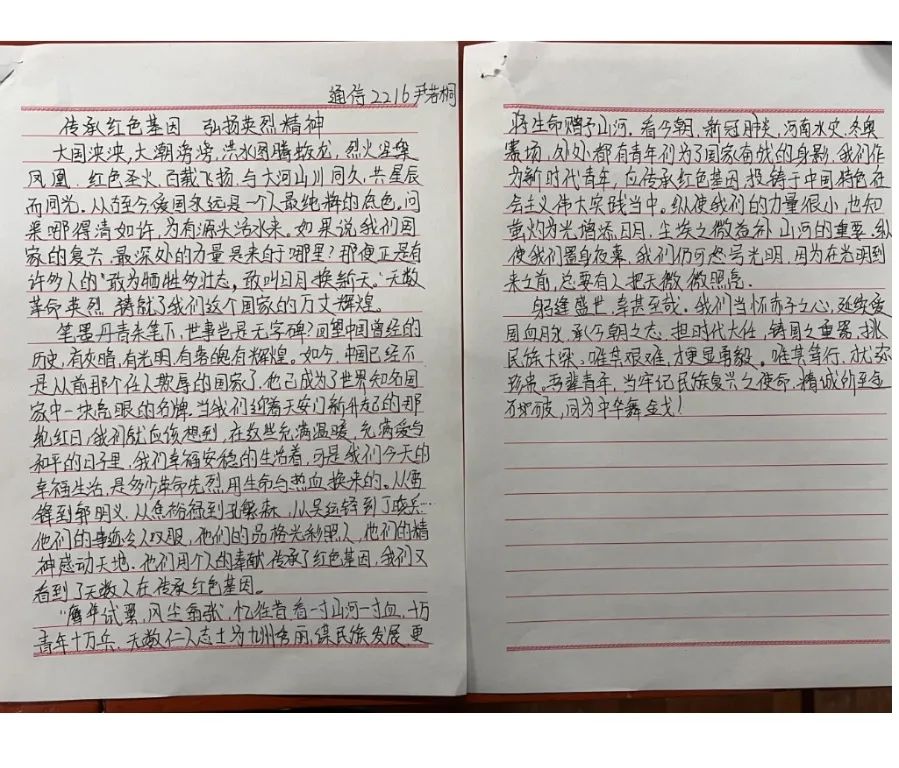 通信2216尹若桐
传承红色基因 弘扬英烈精神
大国泱泱,大潮滂滂,洪水图腾蛟龙,烈火涅槃
凤凰。红色圣火,百载飞扬,与大河山川同久,共星辰
而同光。从古至今爱国永远是一个人最纯粹的底色。问
渠哪得清如许,为有源头活水来。如果说我们国
家的复兴,最深处的力量是来自于哪里?那便正是有
许多人的“敢为牺牲多壮志,敢叫日月换新天。”无数
革命英烈,铸就了我们这个国家的万丈辉煌。
笔墨丹青未笔下,世事岂是无字碑?回望中国曾经的
历史,有灰暗,有光明,有旁绝有辉煌。如今,中国已经不
是从前那个任人欺辱的国家了,他已成为了世界知名国
家中一块亮眼的名牌。当我们迎着天安门新升起的那
轮红日,我们就应该想到,在这些充满温暖,充满爱与
和平的日子里,我们幸福安稳的生活着,可是我们今天的
幸福生活,是多少革命先烈用生命与热血换来的。从雷
锋到郭明义,从焦裕禄到孔繁森,从吴运铎到丁晓兵…
他们的事迹令人叹服,他们的品格光彩照人,他们的精
神感动天地。他们用个人的奉献传承了红色基因,我们又
看到了无数人在传承红色基因。
“鹰隼试翼,风尘翕张”,忆往昔看一寸山河一寸血,十万
青年十万兵,无数仁人志士为九州秀丽,保民族发展,更
将生命赠予山河。看今朝,新冠肺炎,河南水灾,冬奥
赛场,处处都有青年们为了国家奋战的身影,我们作
为新时代青年,应传承红色基因,投铸于中国特色社
会主义伟大实践当中。纵使我们的力量很小,也知
萤灼为光增添日月,尘埃之微益补山河的重要。纵
使我们置身夜幕,我们仍可怒号光明,因为在光明到
来之前,总要有人把天微微照亮。
躬逢盛世,幸甚至哉。我们当怀赤子之心,延续爱
国血脉,承今朝之志,担时代大任,铸国之重器,挑
民族大梁,唯其艰难,才更显勇毅。唯其笃行,才弥
珍贵。吾辈青年,当牢记民族复兴之使命,精诚所至金
石破,同为中华舞金戈!